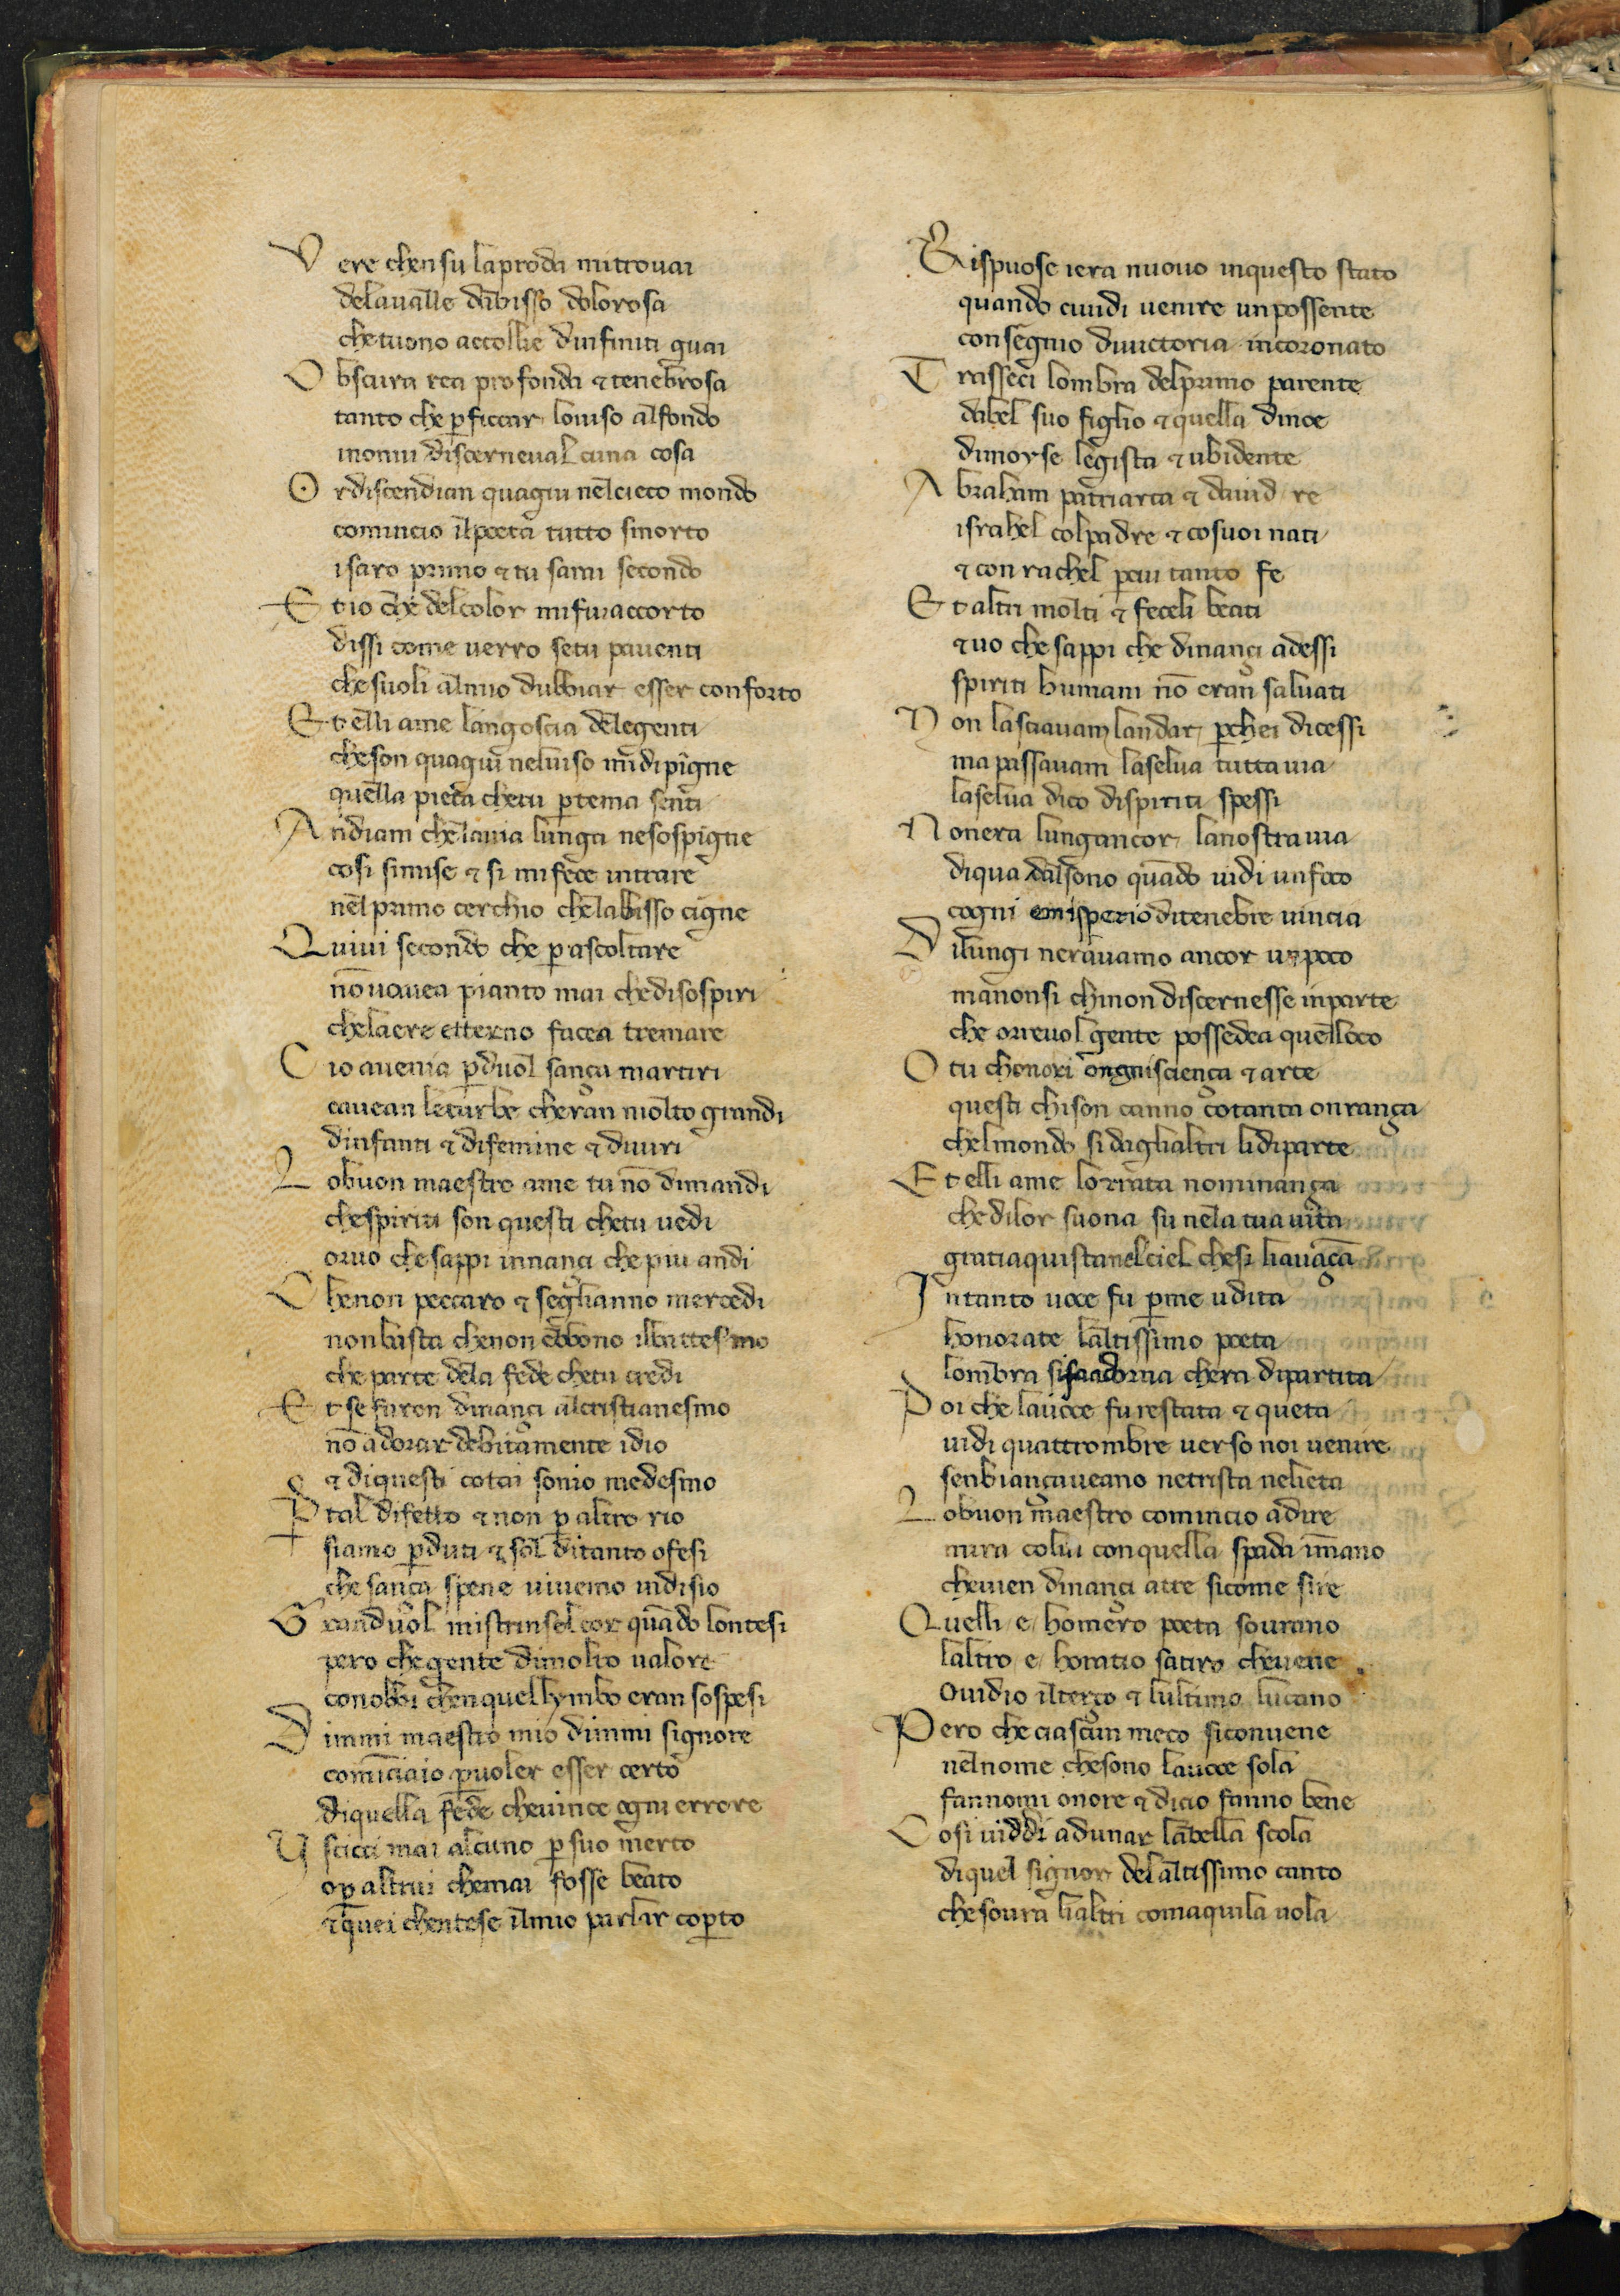 Vere chensu laproda mitrouai
delaualle dabisso dolorosa
chetuono accollie dinfiniti guai
Obscura rea profonda ⁊ tenebrosa
tanto che ꝑficcar louiso alfondo
inonui discerneual cuna cosa
Ordiscendian quagiu nelcieco mondo
comincio ilpoeta tutto smorto
isaro primo ⁊ tu sarai secondo
Et io che delcolor mifuiaccorto
dissi come uerro setu pauenti
chesuoli almio dubbiar esser conforto
Et elli ame langoscia delegenti
cheson quaquiu neluiso midipigne
quella pieta chetu ꝑtema senti
Andiam chelauia lunga nesospigne
cosi simise ⁊ si mifece intrare
nelprimo cerchio chelabisso cigne
Quiui secondo che ꝑascoltare
nōuauea pianto mai chedisospiri
chelaere etterno facea tremare
Cio auenia ꝑduol sança martiri
cauean leturbe cheran molto grandi
dinfanti ⁊ difemine ⁊ diuiri
Lobuon maestro ame tu nō dimandi
chespiriti son questi chetu uedi
oruo chesappi innançi chepiu andi
Chenon peccaro ⁊ seglianno mercedi
nonbasta chenon ebbono ilbattesmo
che parte dela fede chetu credi
Et se furon dinançi alcristianesmo
nō adorar debitamente idio
⁊ diquesti cotai sonio medesmo
Ptal difetto ⁊ non ꝑ altro rio
siamo ꝑduti ⁊ sol ditanto ofesi
che sança spene uiuemo indisio
Granduol mistrinselcor quādo lontesi
pero chegente dimolto ualore
conobbi chenquellymbo eran sospesi
Dimmi maestro mio dimmi signore
comīciaio ꝑuoler esser certo
diquella fede cheuince ogni errore
Uscicci mai alcuno ꝑ suo merto
oꝑ altrui chemai fosse beato
⁊quei chentese ilmio parlar coꝑto
Rispuose iera nuouo inquesto stato
quando ciuidi uenire unpossente
consegnio diuictoria incoronato
Trasseci lombra delprimo parente
dabel suo figlio ⁊ quella dinoe
dimoyse legista ⁊ ubidente
Abraham patriarca ⁊ dauid re
israhel colpadre ⁊ cosuoi nati
⁊ con rachel ꝑcui tanto fe
Et altri molti ⁊ feceli beati
⁊uo che sappi che dinançi adessi
spiriti humani nō eran saluati
Non lasciauam landar ꝑchei dicessi
ma passauam laselua tuttauia
laselua dico dispiriti spessi
Nonera lungancor lanostrauia
diqua dalsono quādo uidi unfoco
cogni emisperio ditenebre uincia
Dilungi nerauamo ancor unpoco
manonsi chinon discernesse inparte
che orreuol gente possedea quelloco
O tu chonori ongnisciença ⁊ arte
questi chison canno cotanta onrança
chelmondo si daglialtri lidiparte
Et elli ame lonrata nominança
chedilor suona su nela tua uita
gratiaquistanelciel chesi liauāça
Intanto uoce fu ꝑme udita
honorate laltissimo poeta
lombra sifaadorna chera dipartita
Poi che lauoce fu restata ⁊ queta
uidi quattrombre uerso noi uenire
senbiançaueano netrista nelieta
Lobuon maestro comincio adire
mira colui conquella spada īmano
cheuien dinançi atre sicome sire
Quelli e homero poeta sourano
laltro e horatio satiro cheuene
Ouidio ilterço ⁊ lultimo lucano
Pero che ciascun meco siconuene
nelnome chesono lauoce sola
fannomi onore ⁊ dicio fanno bene
Cosi uiddi adunar labella scola
diquel signor delaltissimo canto
chesoura lialtri comaquila uola